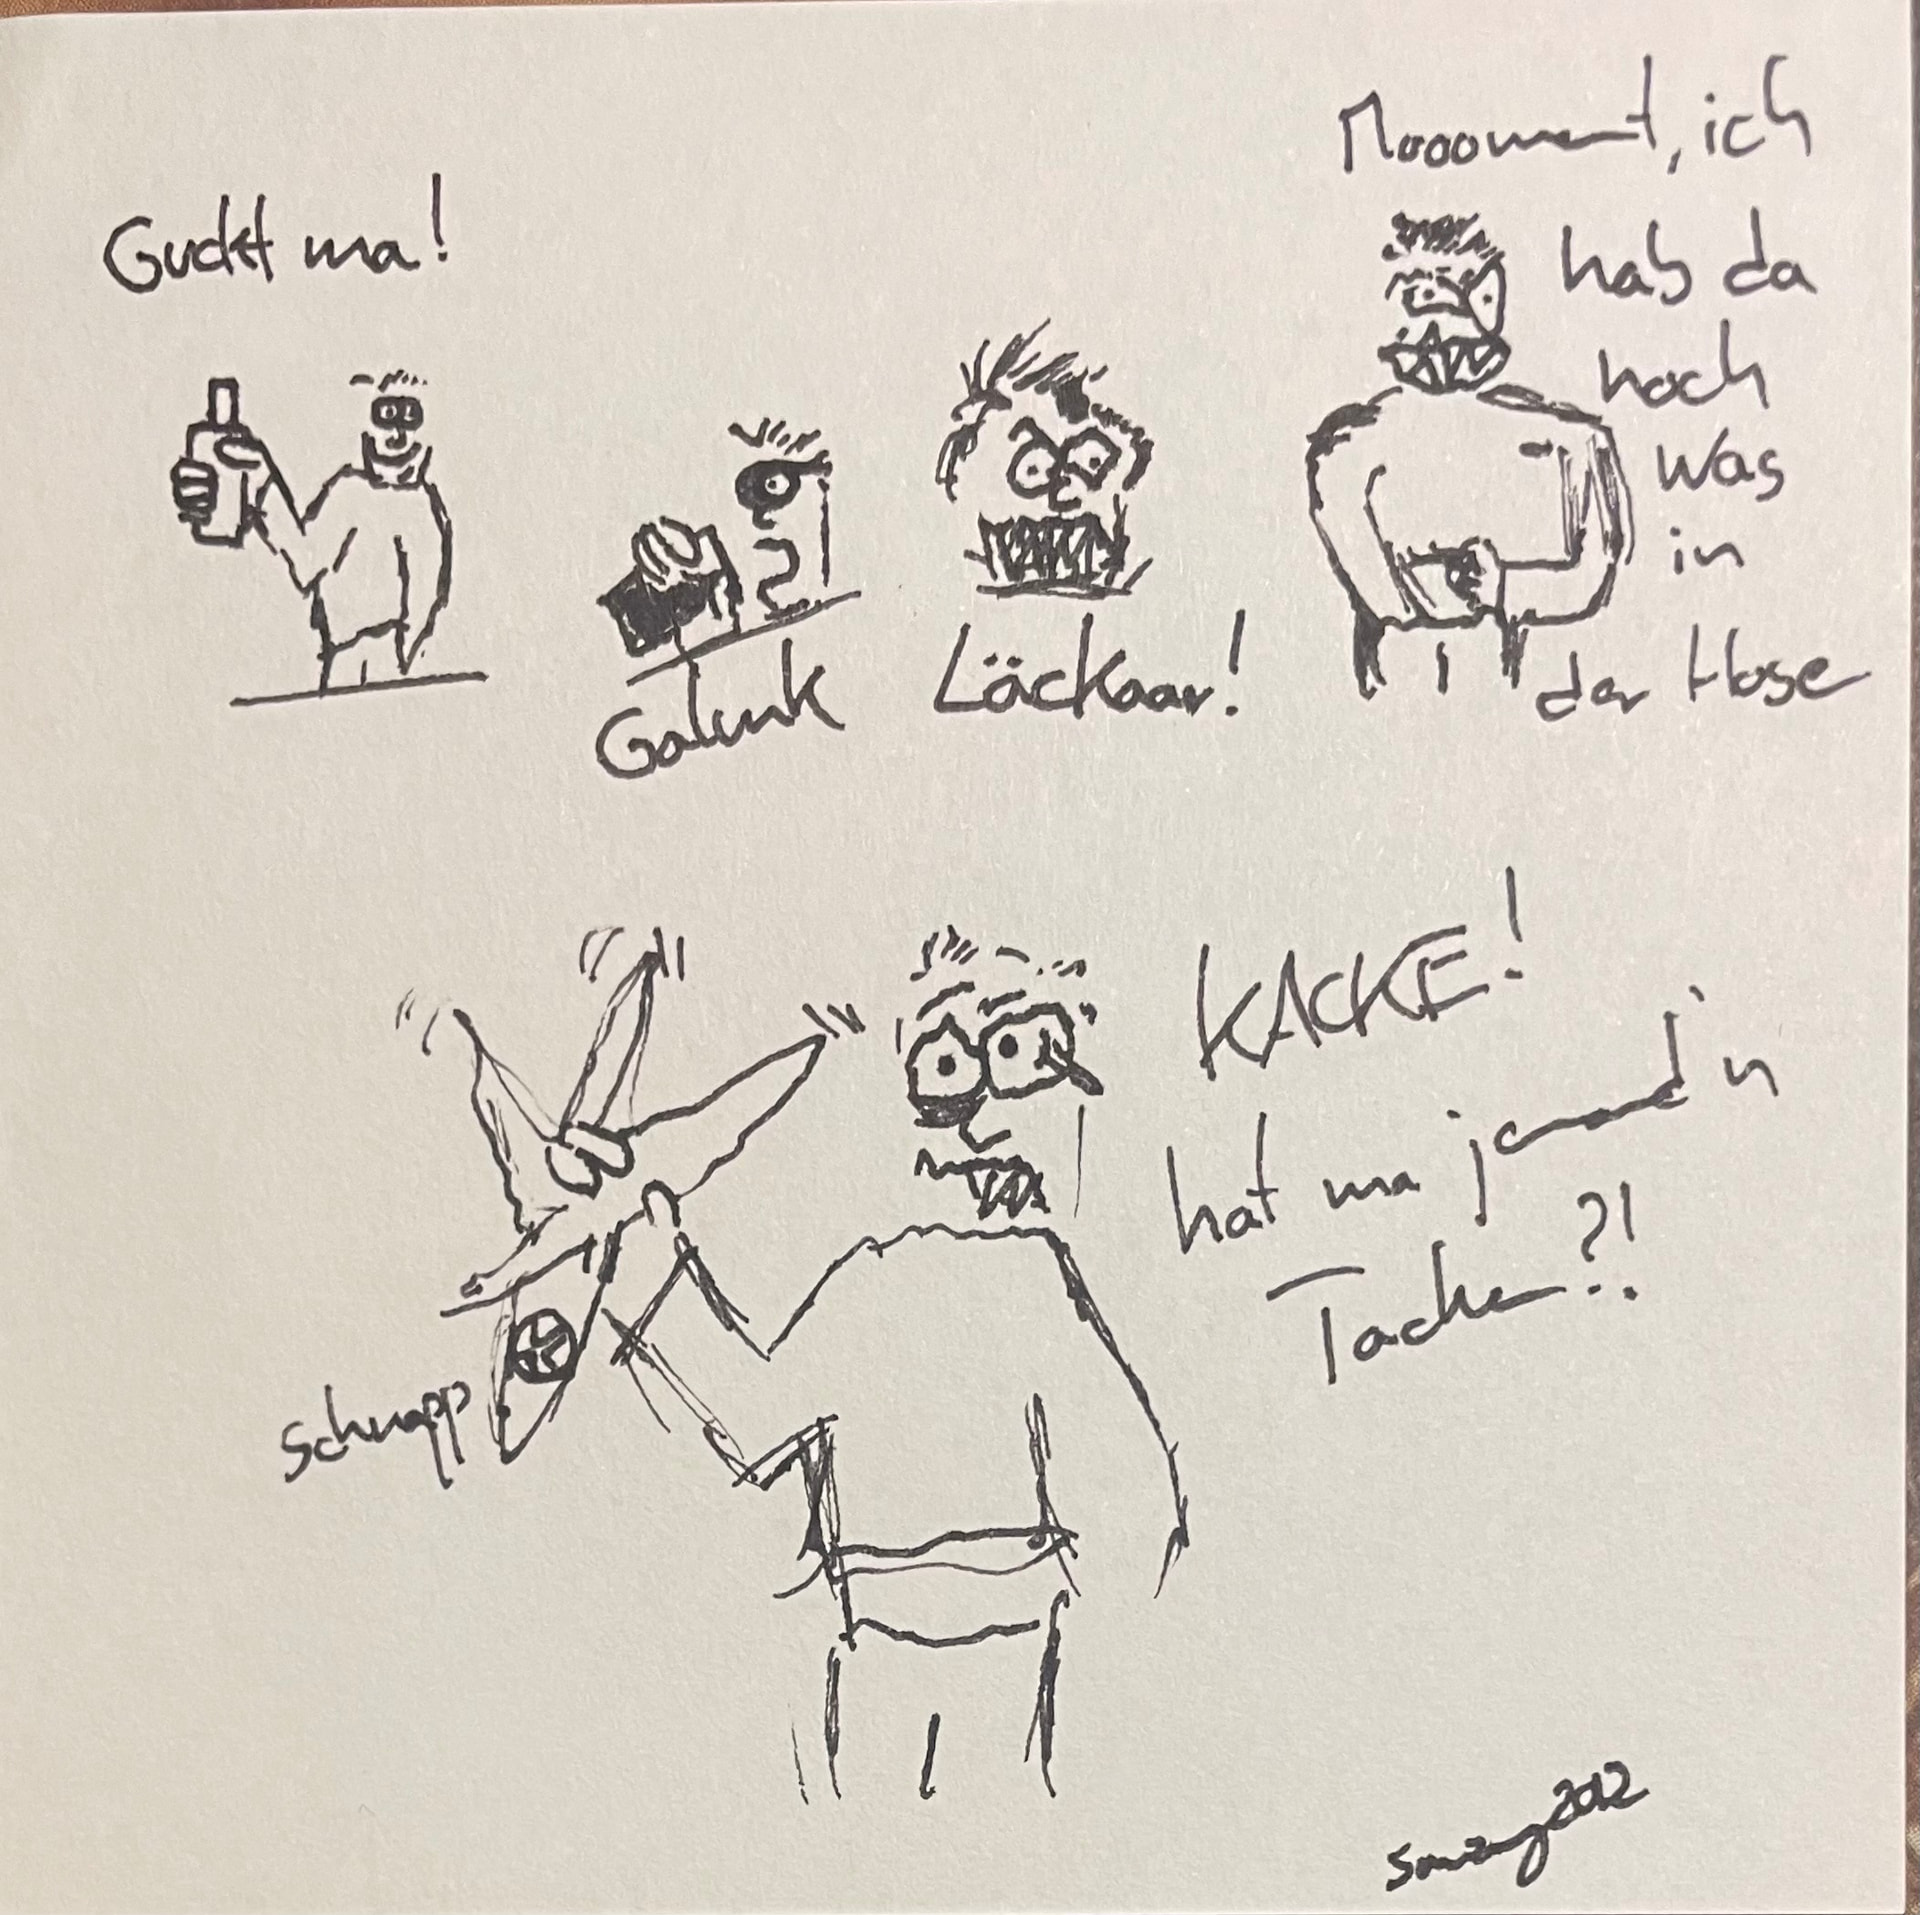 Guckt ma!
Galuuk
Läckaar!
Moooment, ich
hab da
noch
was
in
der Hose
Schnapp
KACKE!
hat ma jemand 'n
Tacker?!
2012